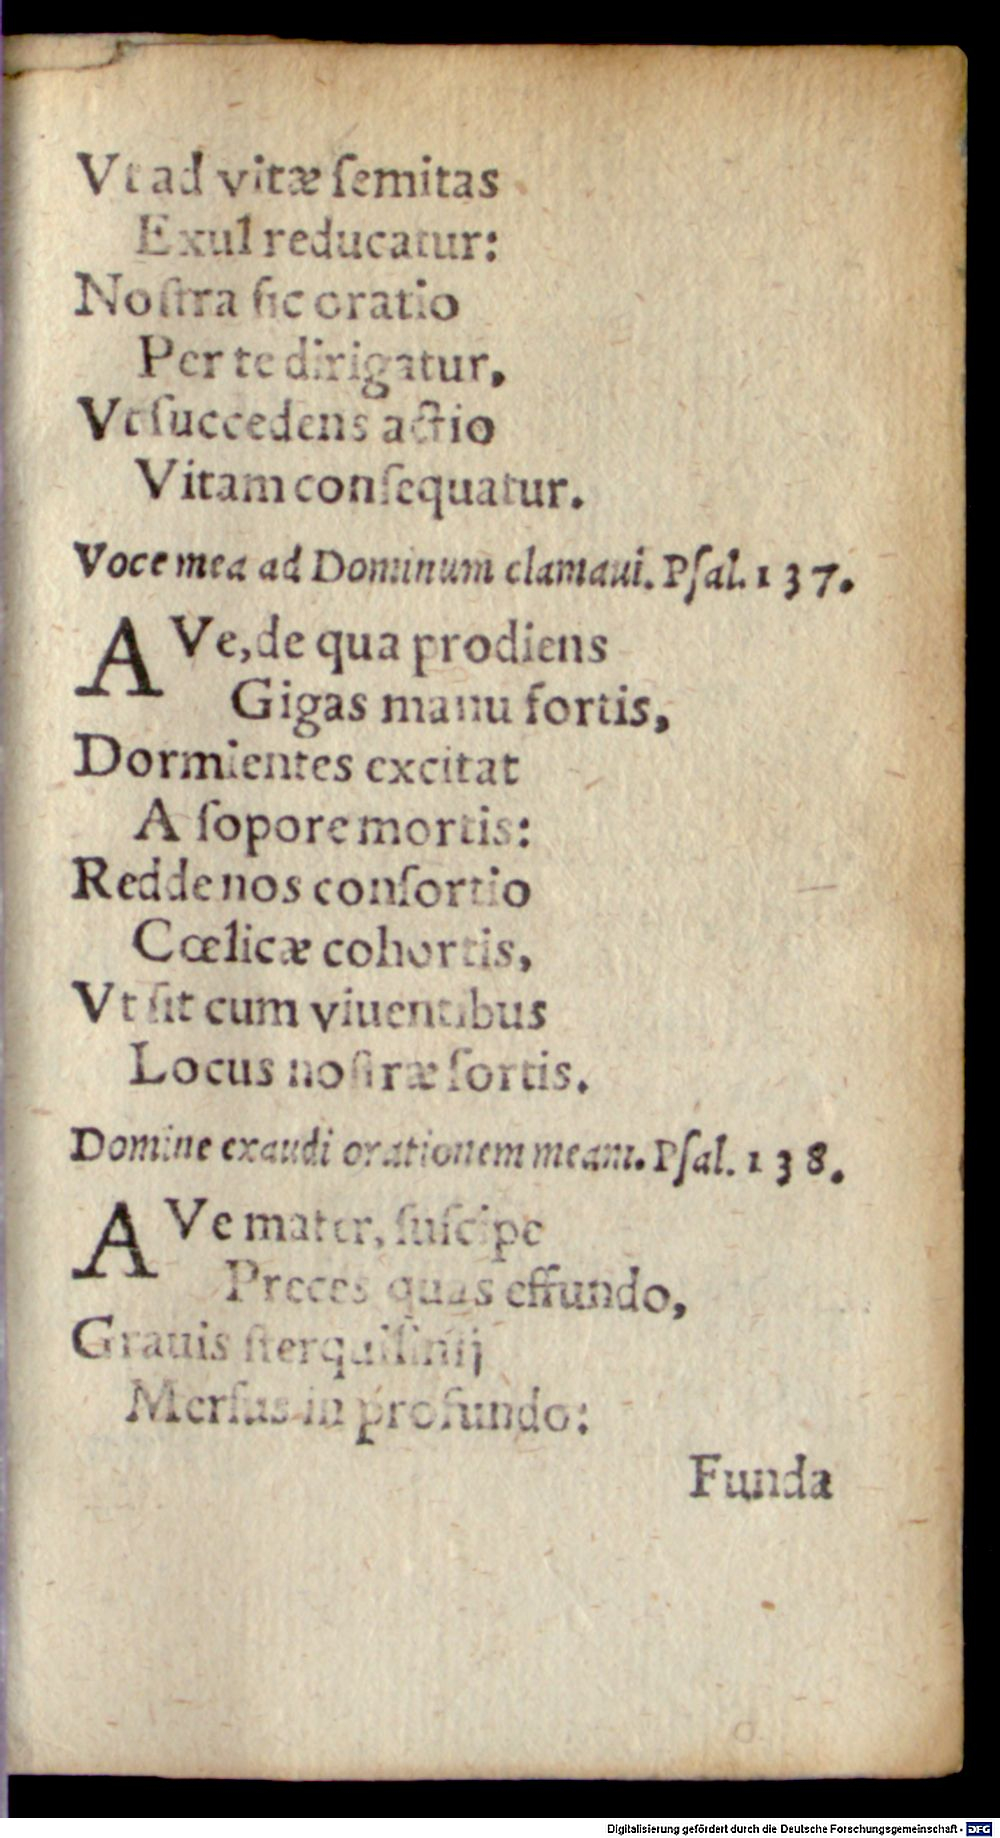 Vt ad vitæ ſemitas
Exul reducatur:
Noſtra ſic oratio
Per te dirigatur,
Vt ſuccedens actio
Vitam conſequatur.
Voce mea ad Dominum clamaui. Pſal. 137.
AVe, de qua prodiens
Gigas manu fortis,
Dormientes excitat
A ſopore mortis:
Redde nos conſortio
Cœlicæ cohortis,
Vt ſit cum viuentibus
Locus noſtræ ſortis.
Domine exaudi orationem meam. Pſal. 138.
AVe mater, ſuſcipe
Preces quas effundo,
Grauis ſterquilinij
Merſus in profundo:
Funda
Digitalisierung gefördert durch die Deutsche Forschungsgemeinschaft - DFG